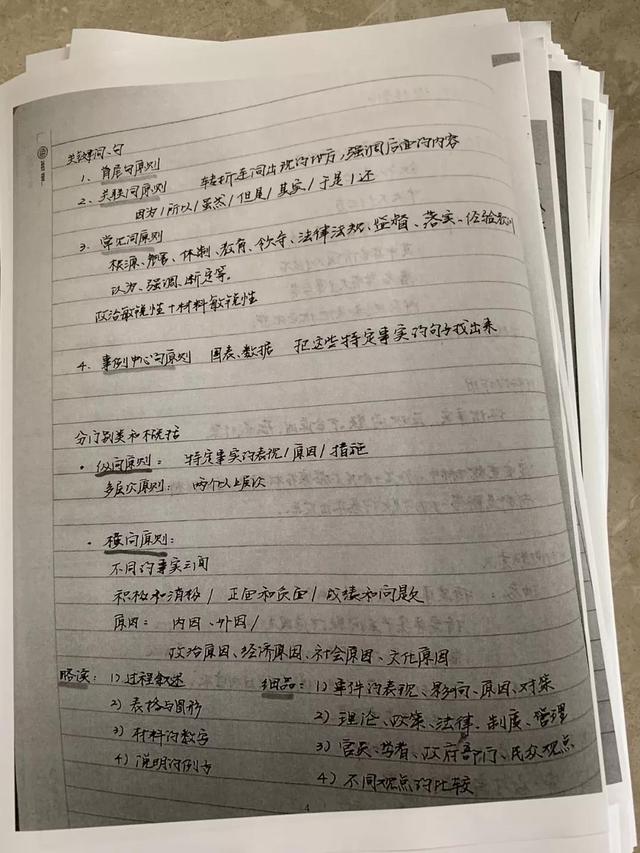 关键词、句
1、首尾句原则
2、关联词原则 转折连词出现的地方，强调后面的内容
因为/所以/虽然/但是/其实/于是/还
3、常见词原则
根源、体制、教育、领导、法律法规、监督、落实、经验教训
认为、强调、断定等。
政治敏锐性+材料敏锐性
4、事例中心句原则 图表、数据 把这些特定事实的句子找出来
分门别类和概括
·纵向原则： 特定事实的表现/原因/措施
多层次原则： 两个以上层次
·横向原则：
不同的事实之间
积极和消极/正面和负面/成绩和问题
原因： 内因、外因/
政治原因、经济原因、社会原因、文化原因
略读： 1）过程叙述 细品： 1）事件的表现、影响、原因、对策
2）表格与图形 2）理论、政策、法律、制度、管理
3）材料的数字 3）官员、学者、政府部门、民众观点
4）说明的例子 4）不同观点的比较
4